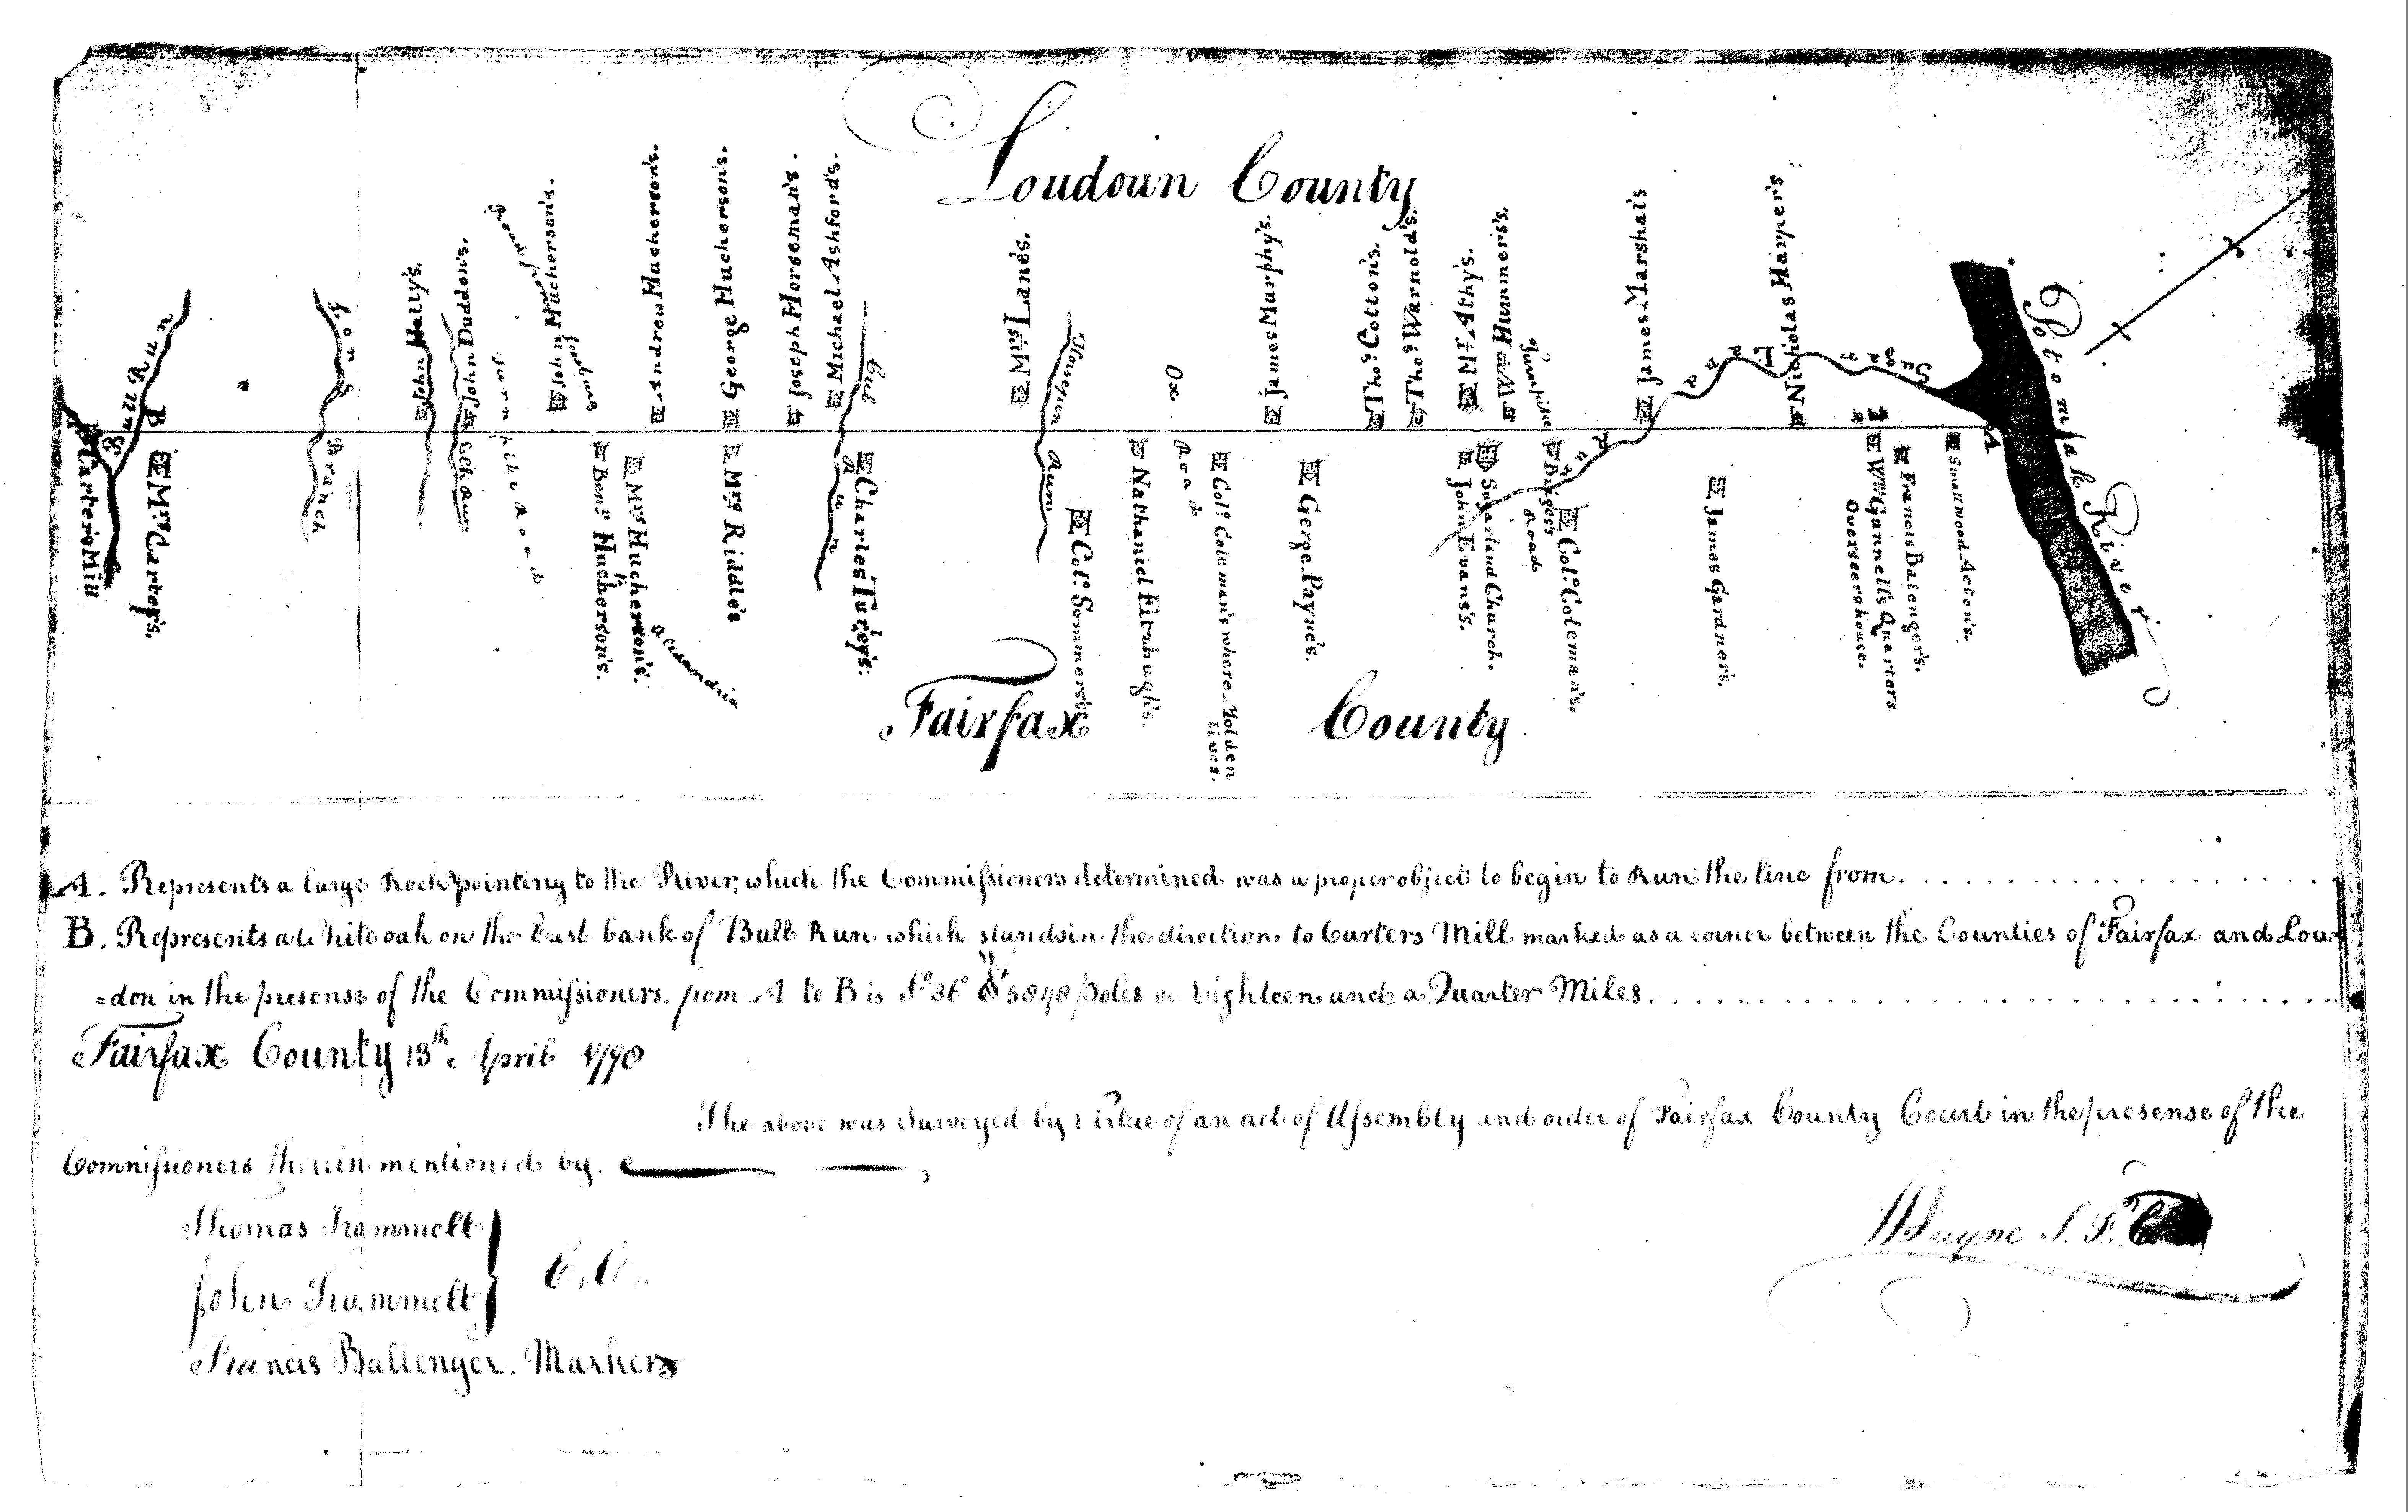 Loudoun County
Bull Run
B
Long Branch
John Hally's.
John Duddon's.
Turnpike Road
John Hucherson's.
Andrew Hucherson's.
George Hucherson's.
Joseph Horseman's.
Michael Ashford's.
Cub Run
Mrs Lane's.
Run
Ox Road
James Murphy's.
Thos Cotton's.
Thos Warnold's.
Mr Athy's.
Wm Hunners's.
Turnpike Road
James Marshal's
Nicholas Harper's
Sugar Land Run
A
Potomak River
Carter's Mill
Mrs Carter's.
Benj. Hucherson's.
Mrs Hucherson's.
Mrs Riddle's
Charles Turley's.
Colo. Sommers's
Nathaniel Fitzhugh's.
Colo. Coleman's where Molden lives.
Gerge Payne's.
John Evans's.
Sugarland Church.
Bridges's
Colo. Coleman's.
James Gardner's.
Wm Gunnell's Quarters
Overseers house.
Francis Balenger's.
Smallwood Acton's.
Fairfax County
A. Represents a large Rock pointing to the River, which the Commissioners determined was a proper object to begin to Run the line from.
B. Represents a White oak on the East bank of Bull Run which stands in the direction to Carters Mill marked as a corner between the Counties of Fairfax and Lou-
=don in the presense of the Commissioners. from A to B is So. 36° 5848 Poles or Eighteen and a Quarter Miles.
Fairfax County 13th. April 1790
The above was Surveyed by Virtue of an act of Assembly and order of Fairfax County Court in the presense of the
Commissioners therein mentioned by.
Thomas Trammell
John Trammell
C. C.
Francis Ballenger. Markers
Payne S. F. C